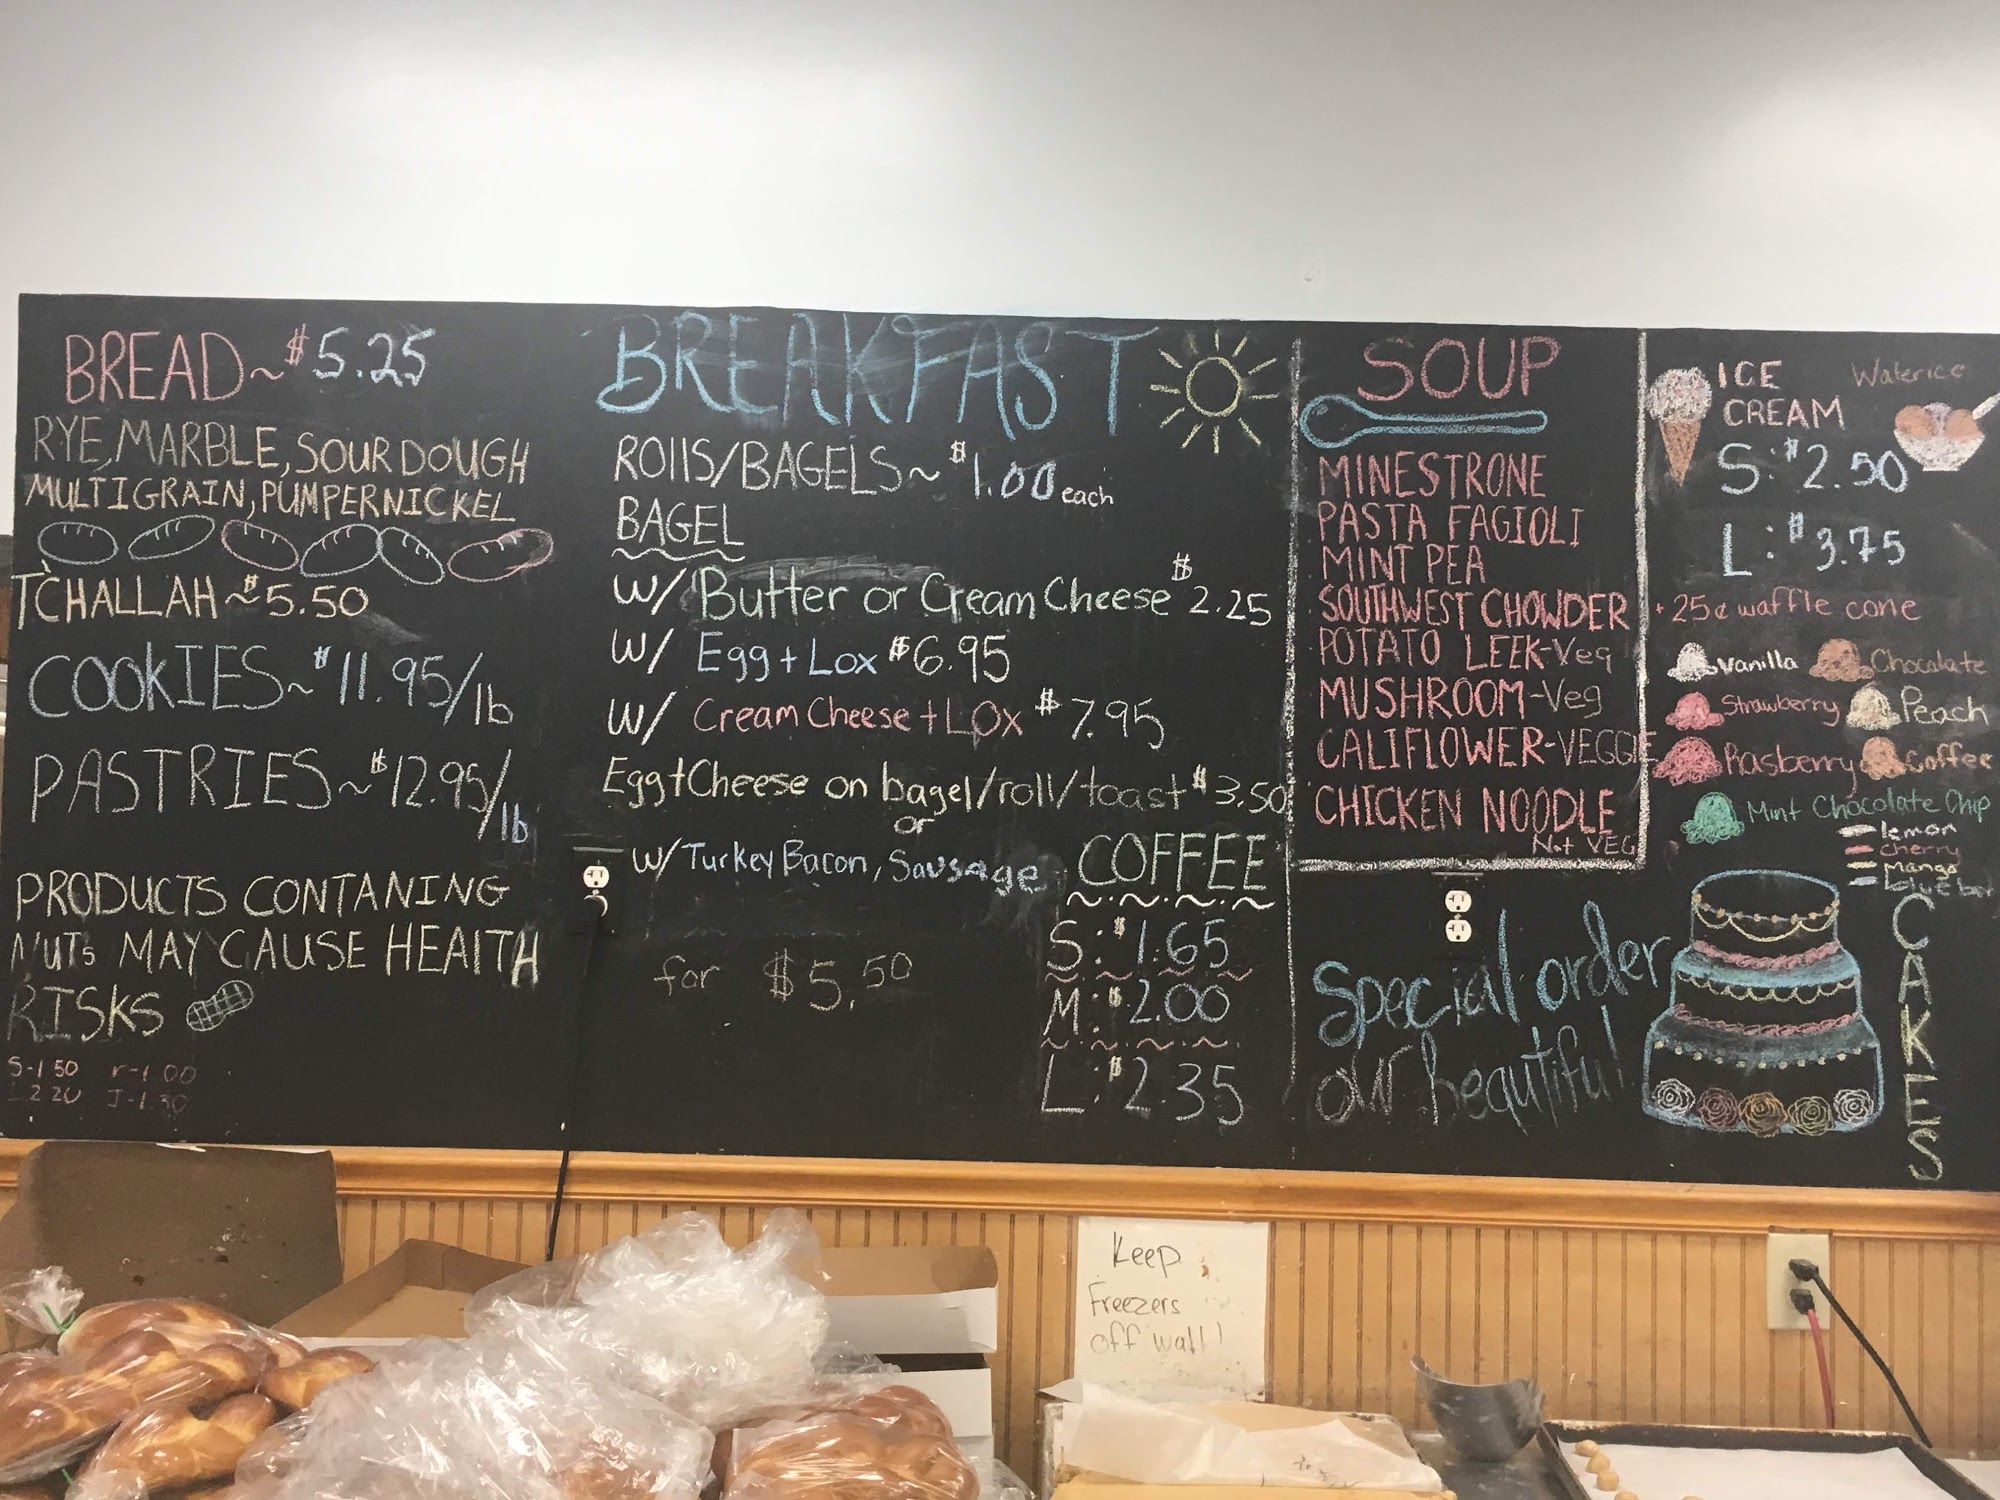 BREAD~$5.25
RYE, MARBLE, SOURDOUGH
MULTIGRAIN, PUMPERNICKEL
T'CHALLAH~$5.50
COOKIES~$11.95/lb
PASTRIES~$12.95/lb
PRODUCTS CONTANING
NUTS MAY CAUSE HEALTH
RISKS
S-1.50 r-1.00
2.20 J-1.30
BREAKFAST
ROllS/BAGELS~$1.00 each
BAGEL
W/ Butter or Cream Cheese $2.25
W/ Egg + Lox $6.95
W/ Cream Cheese + LOX $7.95
Egg+Cheese on bagel/roll/toast $3.50
or
W/ Turkey Bacon, Sausage
for $5.50
COFFEE
S: $1.65
M: $2.00
L: $2.35
SOUP
MINESTRONE
PASTA FAGIOLI
MINT PEA
SOUTHWEST CHOWDER
POTATO LEEK-Veg
MUSHROOM-Veg
CALIFLOWER-VEGGIE
CHICKEN NOODLE
Not VEG
Special order
our beautiful
CAKES
ICE
CREAM
Waterice
S: $2.50
L: $3.75
+25¢ waffle cone
Vanilla Chocolate
Strawberry Peach
Rasberry Coffee
Mint Chocolate Chip
lemon
cherry
Mango
Keep
Freezers
off wall!